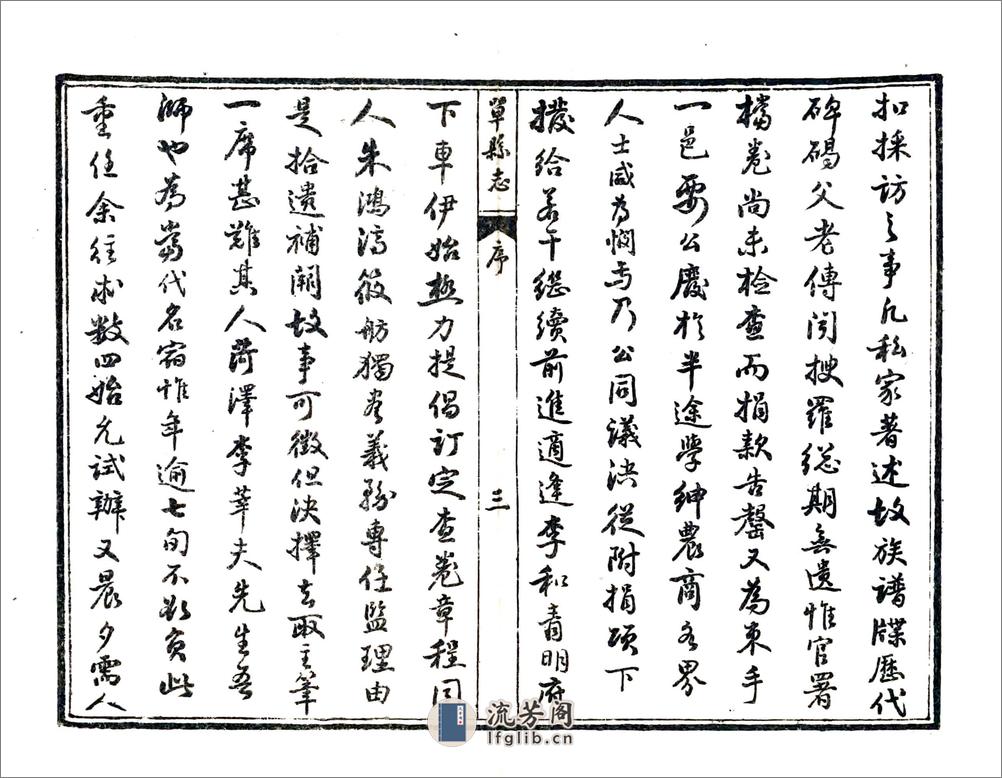 扣採訪之事凡私家著述故族譜牒歷代
碑碣父老傳聞搜羅總期無遺惟官署
檔卷尚未檢查而捐款告罄又為束手
一邑要公廢於半途學紳農商各界
人士咸為憫焉乃公同議決從附捐項下
撥給若干繼續前進適逢李和青明府
單縣志
序
三
下車伊始極力提倡訂定查卷章程同
人朱鴻濤筱舫獨盡義務專任監理由
是拾遺補闕故事可徵但決擇去取主筆
一席甚難其人菏澤李莘夫先生吾
師也為當代名宿惟年逾七旬不欲負此
重任余往求數四始允試辦又晨夕需人
流芳阁
lfglib.cn